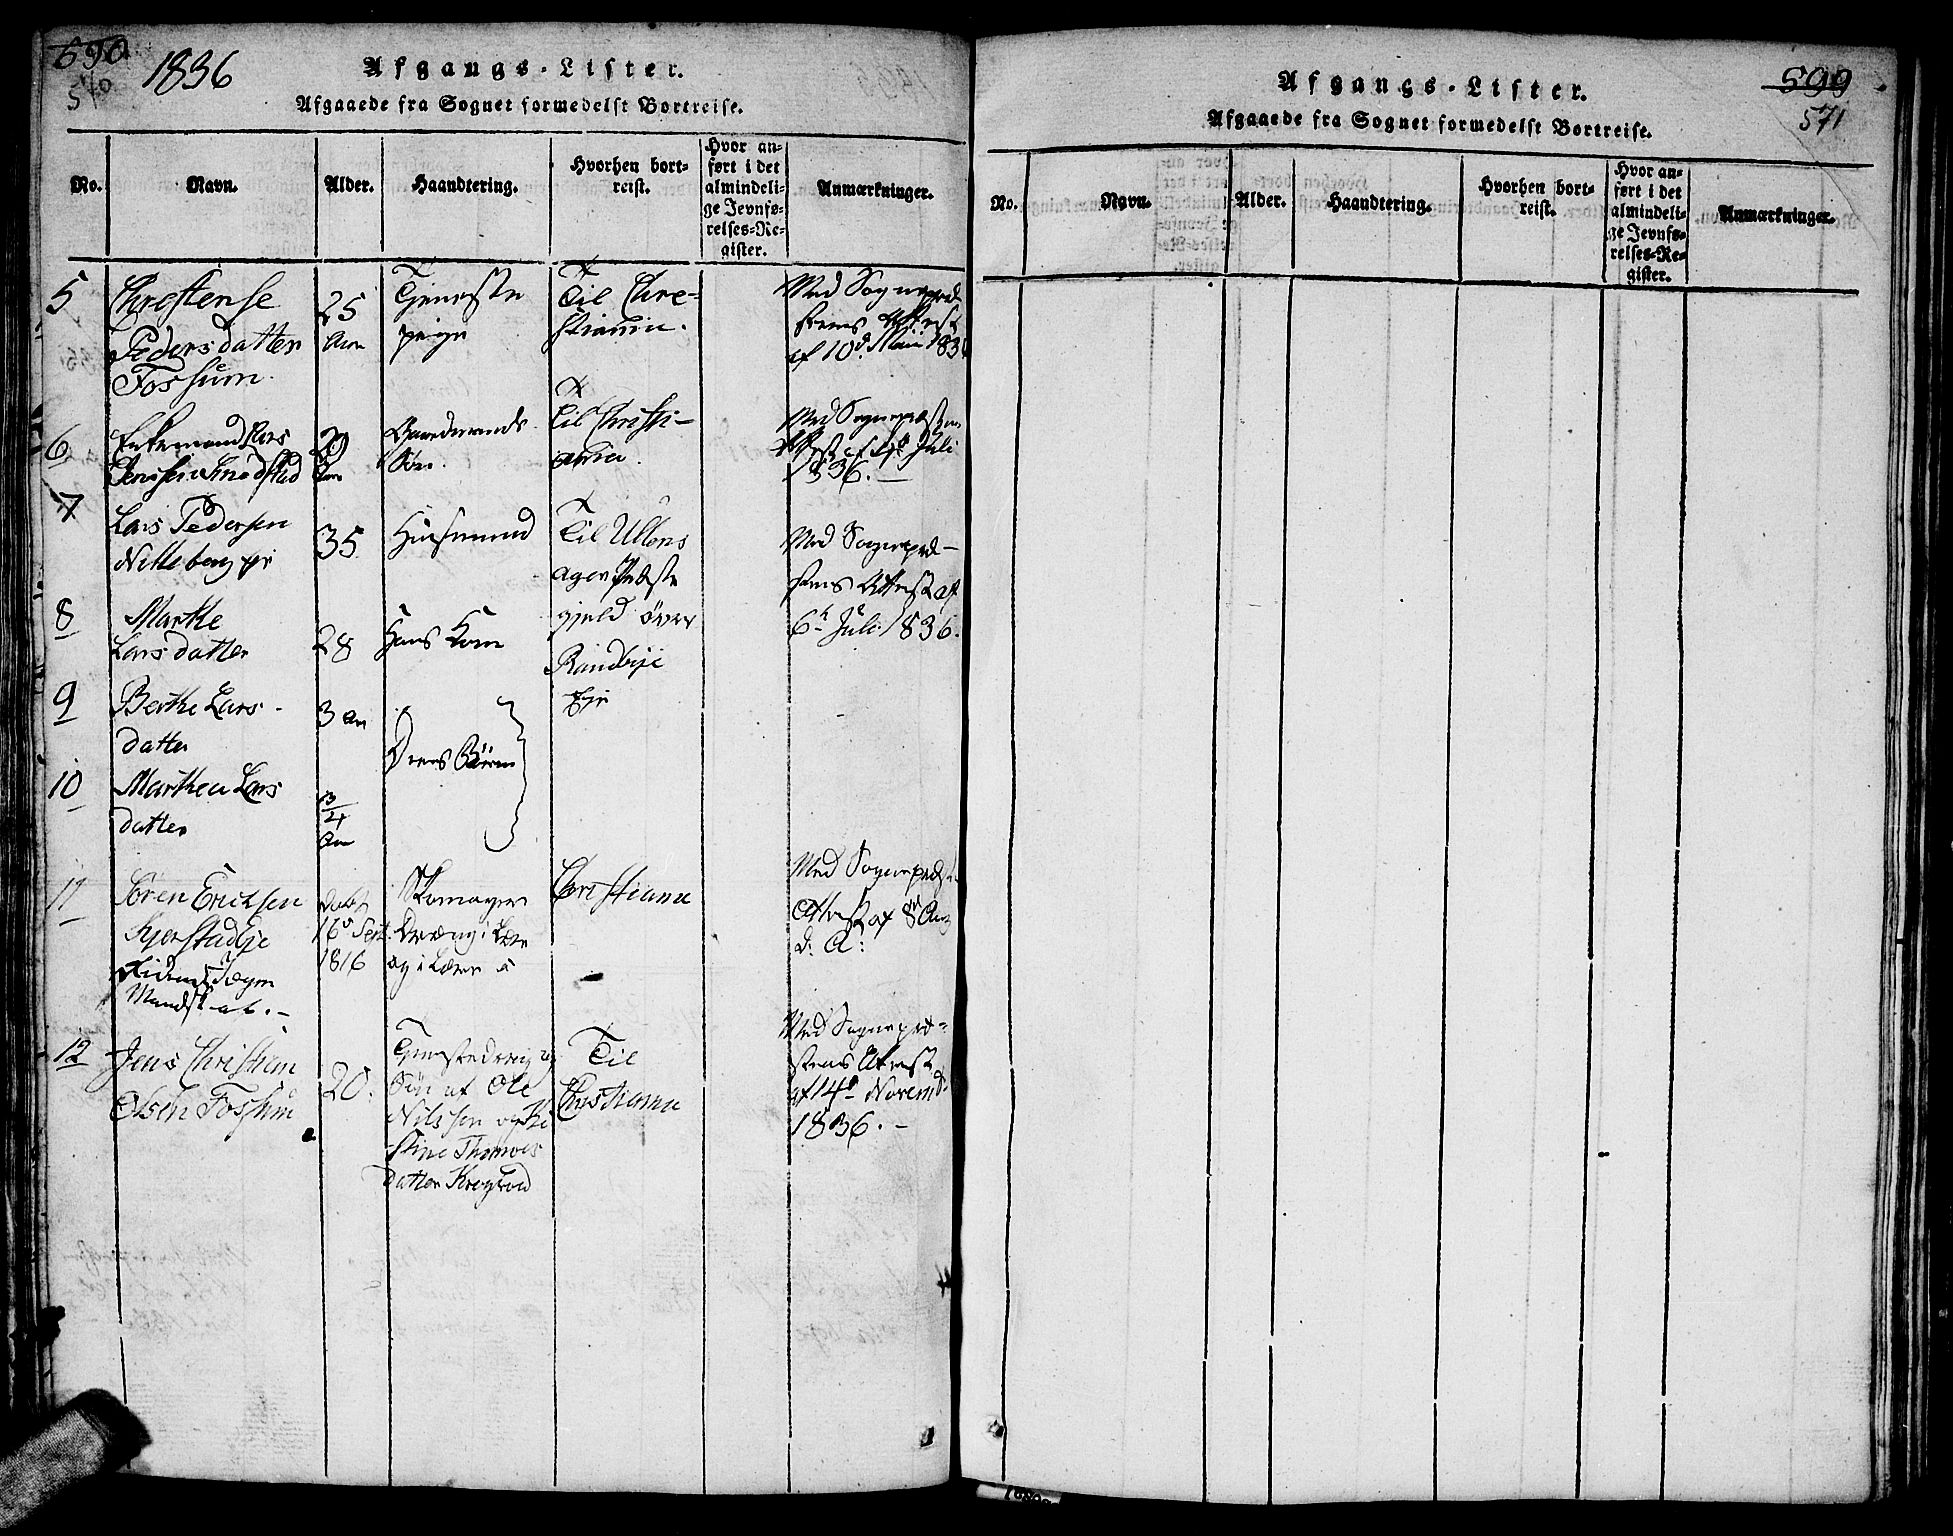 590
570
1836
Afgangs-Lister.
Afgaaede fra Sognet formedelst Bortreise.
No.
Navn.
Alder.
Haandtering.
Hvorhen bort-
reist.
Hvor an-
ført i det
almindeli-
ge Jevnfø-
relses-Re-
gister.
Anmærkninger.
5
Chrestense
Pedersdatter
Fossum.
25
Aar
Tjeneste
pige
Til Chre-
stiania.
Med Sognepræ-
stens Attest
af 10d. Mai 1836
6
Enkemand Lars
Jenssen Smedstad
29
Aar
Gaardmands
Søn.
Til Christi-
ania.
Med Sognepræstens
Attest af Juli
1836.
7
Lars Pedersen
Nitteberg eje
35
Huusmand
Til Ullens
ager Præste
gjeld øvre
Randbye
Eje
Med Sognepræ-
stens Attest af
6te Juli 1836.
8
Marthe
Lars datter
28
Hans Kone
9
Berthe Lars-
datter
3 Aar
Deres Børn
10
Marthea Lars
datter
3/4
Aar
11
Søren Ericksen
Kjerstadeje
Mandskab.
Døbt
16d Sept.
1816
Skomager
Dreng i Lære
og i Lære
Christiania
Med Sognepræste
Attest af 8d Aug
d. A:
12
Jens Christian
Olsen Fossum
20.
Tjenestedreng og
Søn af Ole
Nilssen og Ki
stine Thomes
datter Krogsrud
Til
Christiania
Med Sognepræ-
stens Attest
af 14d Novemb.
1836.
Afgangs-Lister.
Afgaaede fra Sognet formedelst Bortreise.
599
571
No.
Navn.
Alder.
Haandtering.
Hvorhen bort-
reist.
Hvor an-
ført i det
almindeli-
ge Jevnfø-
relses-Re-
gister.
Anmærkninger.